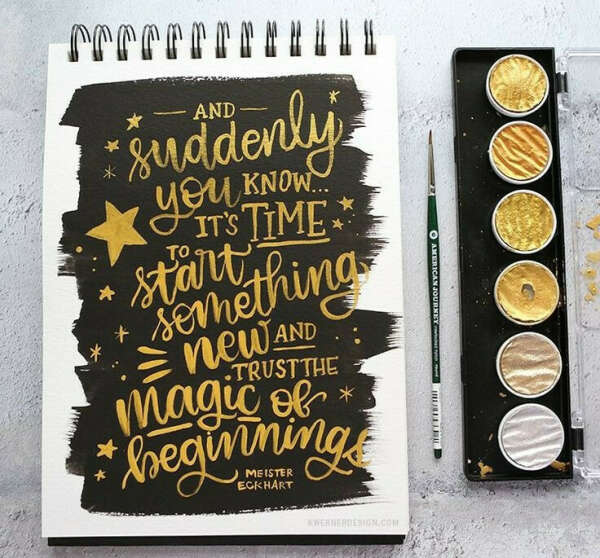 AND
suddenly
you KNOW...
IT'S TIME
TO
start
something
new AND
TRUST THE
magic of
beginnings
MEISTER
ECKHART
KWERNERDESIGN.COM
AMERICAN JOURNEY